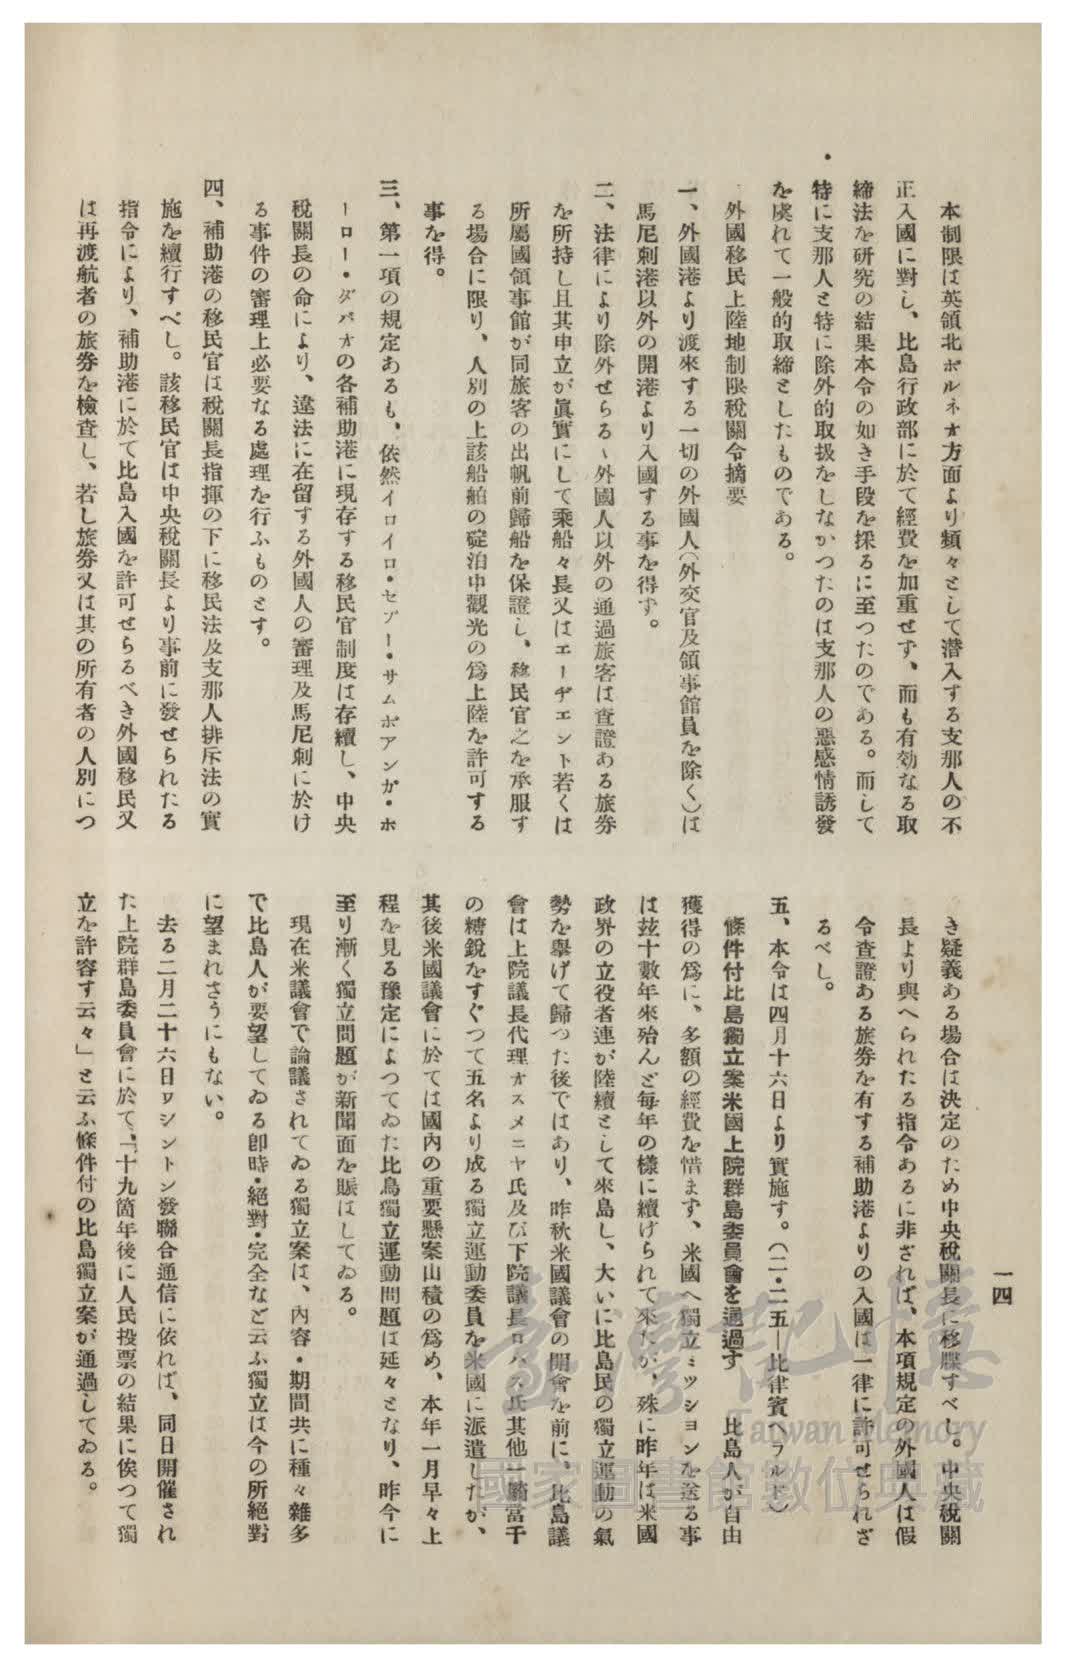 本制限は英領北ボルネオ方面より頻々として潜入する支那人の不
正入國に對し、比島行政部に於て經費を加重せず、而も有効なる取
締法を研究の結果本令の如き手段を採るに至つたのである。而して
特に支那人と特に除外的取扱をしなかつたのは支那人の惡感情誘發
を虞れて一般的取締としたものである。
外國移民上陸地制限稅關令摘要
一、外國港より渡來する一切の外國人（外交官及領事館員を除く）は
馬尼刺港以外の開港より入國する事を得ず。
二、法律により除外せらるゝ外國人以外の通過旅客は査證ある旅券
を所持し且其申立が眞實にして乘船々長又はエーヂエント若くは
所屬國領事館が同旅客の出帆前歸船を保證し、移民官之を承服す
る場合に限り、人別の上該船舶の碇泊中觀光の爲上陸を許可する
事を得。
三、第一項の規定あるも、依然イロイロ・セブー・サムボアンガ・ホ
ーロー・ダバオの各補助港に現存する移民官制度は存續し、中央
稅關長の命により、違法に在留する外國人の審理及馬尼刺に於け
る事件の審理上必要なる處理を行ふものとす。
四、補助港の移民官は稅關長指揮の下に移民法及支那人排斥法の實
施を續行すべし。該移民官は中央稅關長より事前に發せられたる
指令により、補助港に於て比島入國を許可せらるべき外國移民又
は再渡航者の旅券を檢査し、若し旅券又は其の所有者の人別につ
一四
き疑義ある場合は決定のため中央稅關長に移牒すべし。中央稅關
長より與へられたる指令あるに非ざれば、本項規定の外國人は假
令査證ある旅券を有する補助港よりの入國は一律に許可せられざ
るべし。
五、本令は四月十六日より實施す。（二・二五―比律賓ヘラルド）
條件付比島獨立案米國上院群島委員會を通過す　比島人が自由
獲得の爲に、多額の經費を惜まず、米國へ獨立ミツシヨンを送る事
は玆十數年來殆んど每年の樣に續けられて來たが、殊に昨年は米國
政界の立役者連が陸續として來島し、大いに比島民の獨立運動の氣
勢を擧げて歸つた後ではあり、昨秋米國議會の開會を前に、比島議
會は上院議長代理オスメニヤ氏及び下院議長ロハス氏其他一騎當千
の精銳をすぐつて五名より成る獨立運動委員を米國に派遣したが、
其後米國議會に於ては國內の重要懸案山積の爲め、本年一月早々上
程を見る豫定によつてゐた比島獨立運動問題は延々となり、昨今に
至り漸く獨立問題が新聞面を賑はしてゐる。
現在米議會で論議されてゐる獨立案は、內容・期間共に種々雜多
で比島人が要望してゐる卽時・絕對・完全など云ふ獨立は今の所絕對
に望まれさうにもない。
去る二月二十六日ワシントン發聯合通信に依れば、同日開催され
た上院群島委員會に於て、「十九箇年後に人民投票の結果に俟つて獨
立を許容す云々」と云ふ條件付の比島獨立案が通過してゐる。
臺灣記憶
Taiwan Memory
國家圖書館數位典藏